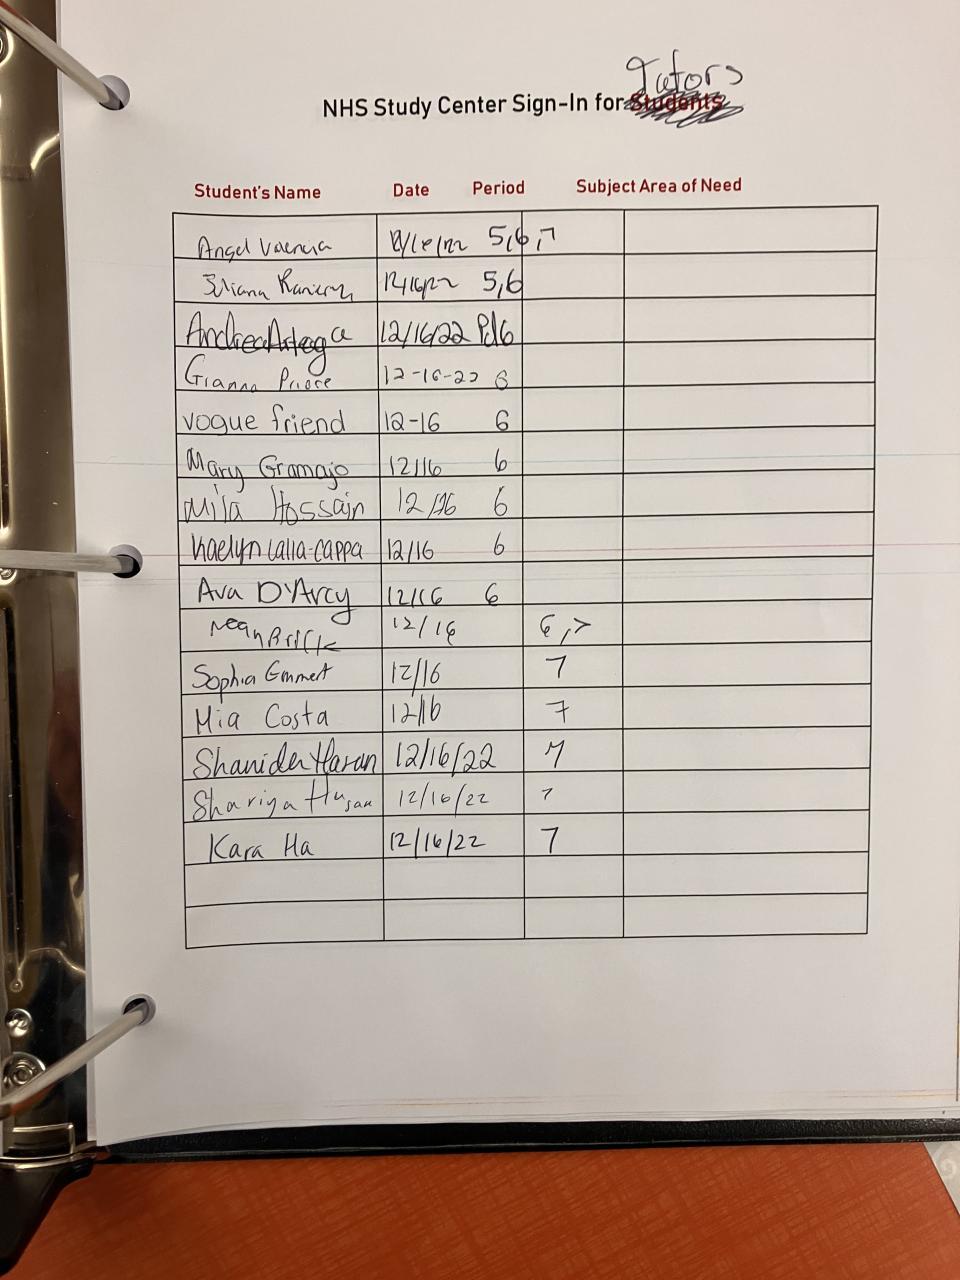 Tutors
NHS Study Center Sign-In for Students
Student's Name Date Period Subject Area of Need
Angel Valencia 12/16/22 5,6,7
12/16/22 5,6
Andrea Arteaga 12/16/22 Pd6
Gianna Priore 12-16-22 6
vogue friend 12-16 6
Mary Gramajo 12/16 6
Mila Hossain 12/16 6
Kaelyn Lalla-Cappa 12/16 6
Ava D'Arcy 12/16 6
12/16 6,7
Sophia Emmert 12/16 7
Mia Costa 12/16 7
Shanida Haran 12/16/22 7
Shariya 12/16/22 7
Kara Ha 12/16/22 7